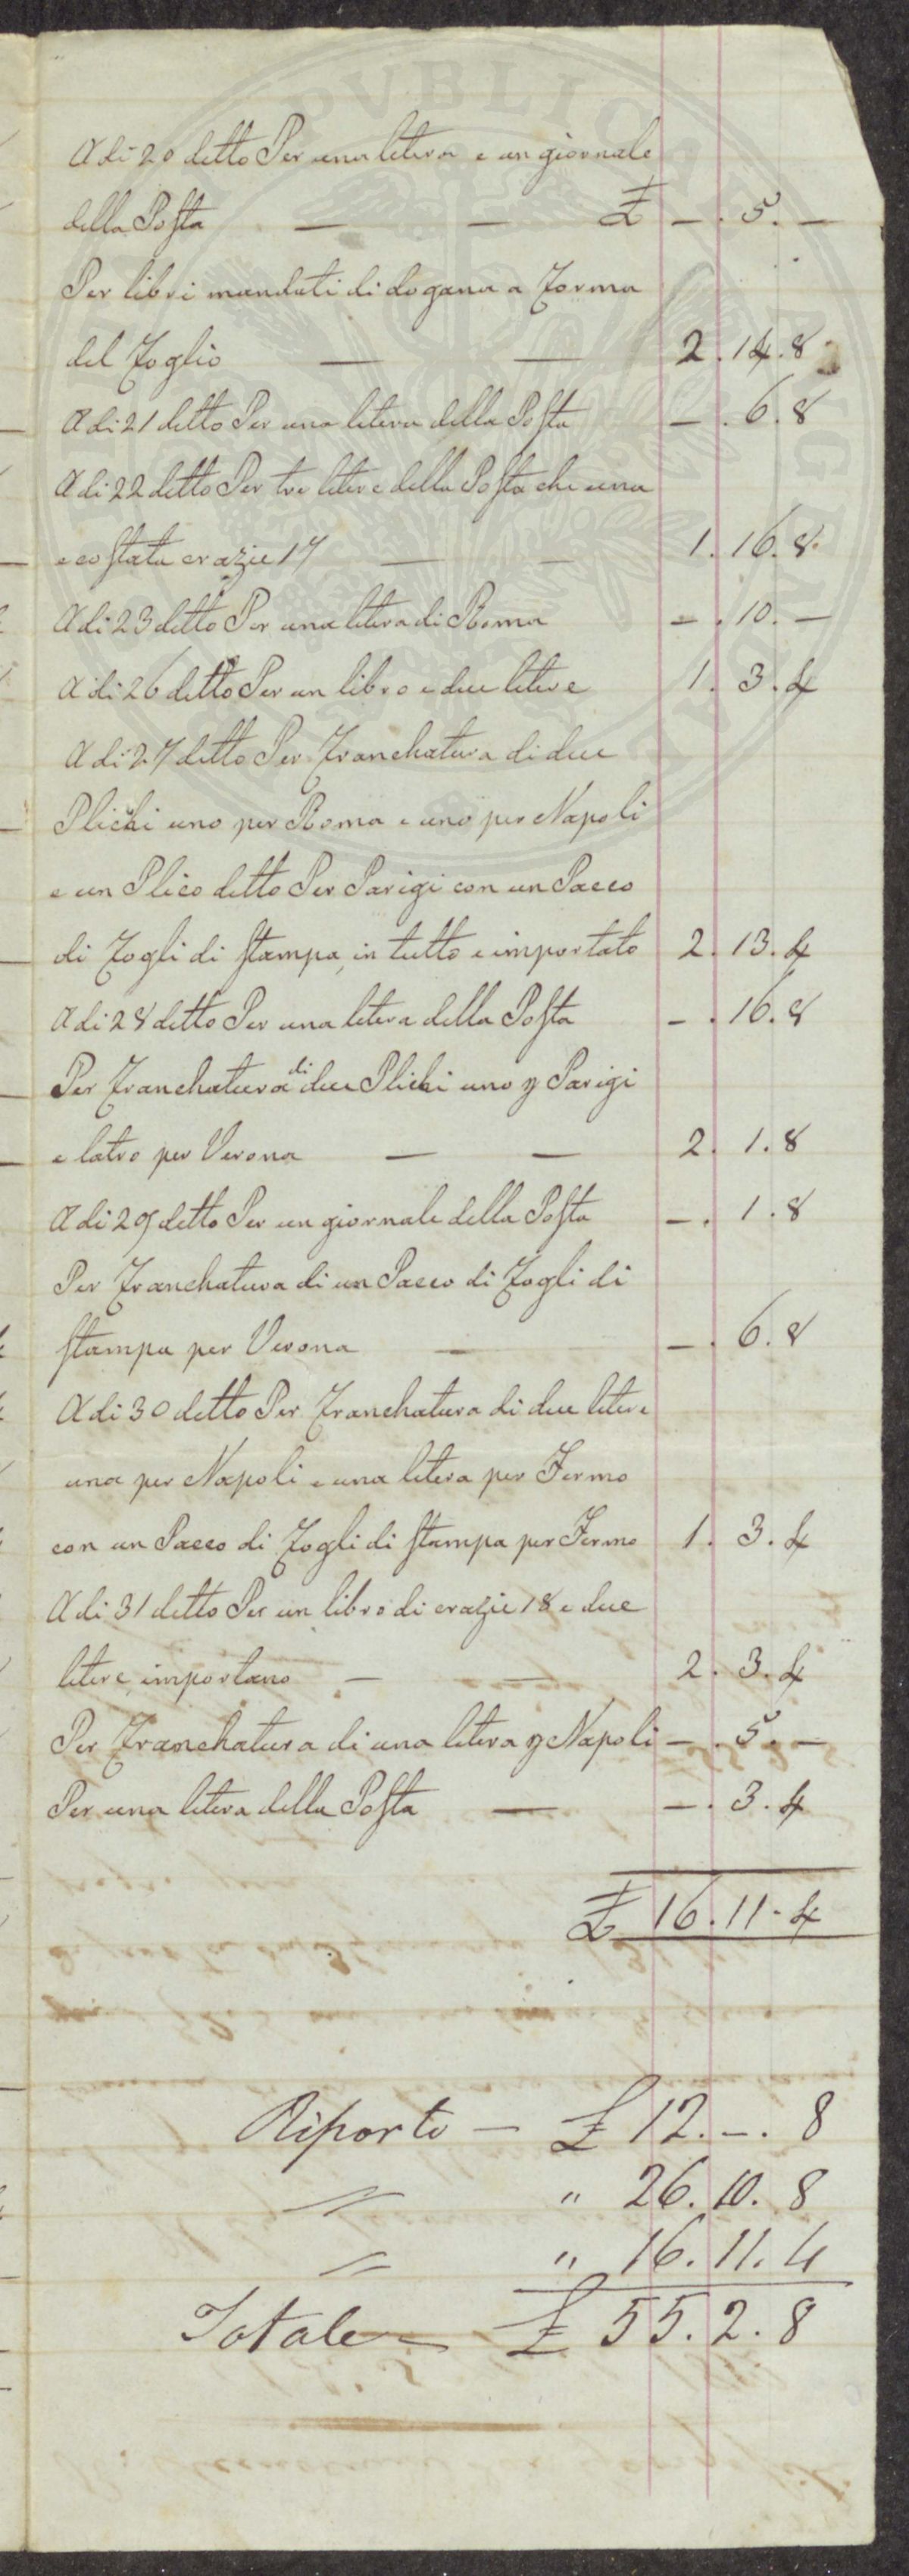 PVBLICA
A di 20 detto Per una letera e un giornale
della Posta — — £ — . 5 . —
Per libri mandati di dogana a Torma
del Foglio — — 2 . 14 . 8
A di 21 detto Per una letera della Posta — . 6 . 8
A di 22 detto Per tre letere della Posta che una
e costata crazie 17 — — 1 . 16 . 8
A di 23 detto Per una letera di Roma — . 10 . —
A di 26 detto Per un libro e due letere 1 . 3 . 4
A di 27 detto Per Franchatura di due
Plichi uno per Roma e uno per Napoli
e un Plico detto Per Parigi con un Pacco
di Fogli di Stampa, in tutto e importato 2 . 13 . 4
A di 28 detto Per una letera della Posta — . 16 . 8
Per Franchatura di due Plichi uno p Parigi
e latro per Verona — — 2 . 1 . 8
A di 29 detto Per un giornale della Posta — . 1 . 8
Per Franchatura di un Pacco di Fogli di
Stampa per Verona — — . 6 . 8
A di 30 detto Per Franchatura di due letere
una per Napoli e una letera per Fermo
con un Pacco di Fogli di Stampa per Fermo 1 . 3 . 4
A di 31 detto Per un libro di crazie 18 e due
letere, importano — — 2 . 3 . 4
Per Franchatura di una letera p Napoli — . 5 . —
Per una letera della Posta — — . 3 . 4
£ 16 . 11 . 4
Riporto — £ 12 . — . 8
" " 26 . 10 . 8
" " 16 . 11 . 4
Totale — £ 55 . 2 . 8